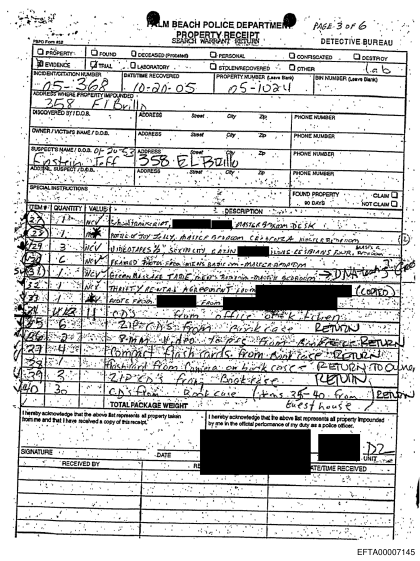 PALM BEACH POLICE DEPARTMENT PAGE 3 of 6
PROPERTY RECEIPT
SEARCH WARRANT RETURN
PBPD Form #23 DETECTIVE BUREAU
PROPERTY FOUND DECEASED (Probated) PERSONAL CONFISCATED DESTROY
EVIDENCE TRIAL LABORATORY STOLEN/RECOVERED OTHER Lab
INCIDENT/CITATION NUMBER DATE/TIME RECOVERED PROPERTY NUMBER (Leave Blank) BIN NUMBER (Leave Blank)
05-368 10-20-05 05-1024
ADDRESS WHERE PROPERTY IMPOUNDED
358 El Brillo
DISCOVERED BY / D.O.B. ADDRESS Street City Zip PHONE NUMBER
OWNER / VICTIM'S NAME / D.O.B. ADDRESS Street City Zip PHONE NUMBER
SUSPECT'S NAME / D.O.B. ADDRESS Street City Zip PHONE NUMBER
Epstein Jeff 358 El Brillo
ADD'NL SUSPECT / D.O.B. ADDRESS Street City Zip PHONE NUMBER
SPECIAL INSTRUCTIONS FOUND PROPERTY CLAIM
90 DAYS NOT CLAIM
ITEM # QUANTITY VALUE DESCRIPTION
27 1 NCV TRANSCRIPT, MASTER BDRM DESK
28 1 BOTTLE OF JOY JELLY, MASTER BEDROOM
29 3 NCV VIDEOTAPES
30 6 NCV FRAMED PHOTOS FROM MENS BATHROOM - MASTER BEDROOM
31 1 NCV GREEN MASSAGE TABLE, MEN'S BATHROOM - MASTER BEDROOM → DNA
32 1 NCV THRIFTY RENTAL AGREEMENT FROM (COPIED)
33 1 NOTE FROM FROM
34 CD's from office off kitchen
35 6 ZIP CD's from Bookcase RETURN
36 2 8-MM Video tapes from Book case RETURN
37 4 Compact flash cards from Bookcase RETURN
38 1 flashcard from Camera on book case - RETURN TO Owner
39 2 ZIP CD's from Bookcase RETURN
40 30 CD's from book case (items 35-40 from RETURN
TOTAL PACKAGE WEIGHT Guest house
I hereby acknowledge that the above list represents all property taken
from me and that I have received a copy of this receipt.
I hereby acknowledge that the above list represents all property impounded
by me in the official performance of my duty as a police officer.
D2
SIGNATURE DATE UNIT
RECEIVED BY DATE/TIME RECEIVED
EFTA00007145